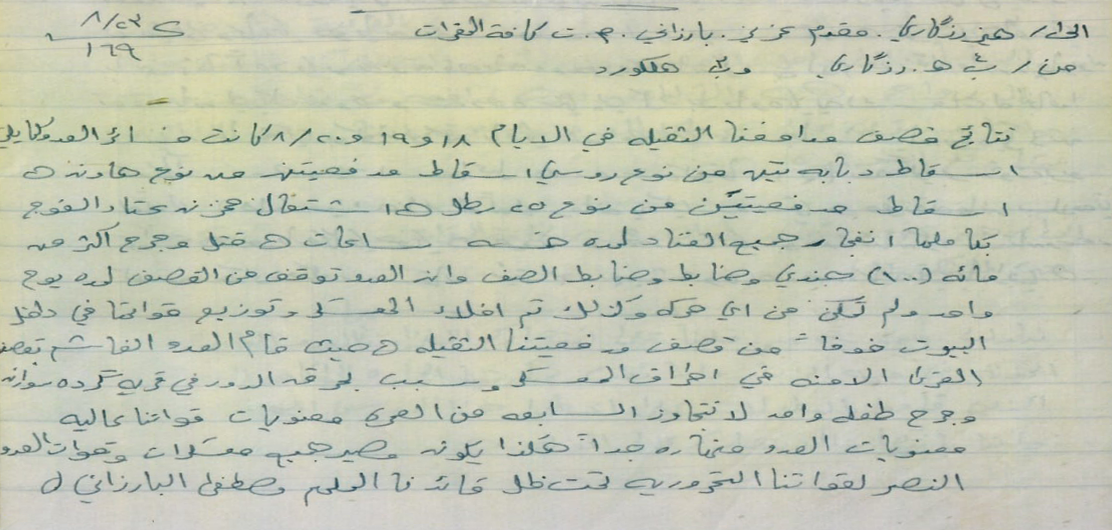 الى / هيز رزكاري . مقدم عزيز . بارزاني . م . ت كافة المقرات
٨/٢٣
١٦٩
من / ب ھ . رزكاري وب هلكورد
نتائج قصف مدافعنا الثقيله في الايام ١٨ و ١٩ و ٢٠ / ٨ كانت خسائر العدو كمايلي
اسقاط دبابه تين من نوع روسي اسقاط مدفعيتن من نوع هاون
اسقاط مدفعيتين من نوع ٢٥ رطل اشتعال مخزن عتاد الفوج
بكاملها انفجار جميع العتاد لمده خمسه ساعات قتل وجرح اكثر من
مائه (١٠٠) جندي وضابط وضابط الصف وان العدو توقف من القصف لمده يوم
واحد ولم تكن من اي حركه وكذلك تم اخلاء المعسكر وتوزيع قواتها في داخل
البيوت خوفاً من قصف مدفعيتنا الثقيله حيث قام العدو الغاشم بقصف
القرى الامنه في اطراف المعسكر وسبب بحرق الدور في قرية
وجرح طفله واحد لا تتجاوز السابعه من العمر معنويات قواتنا عاليه
معنويات العدو منهاره جداً هكذا يكون مصير جميع معسكرات وقوات العدو
النصر لقواتنا التحرريه تحت ظل قائدنا الملهم مصطفى البارزاني